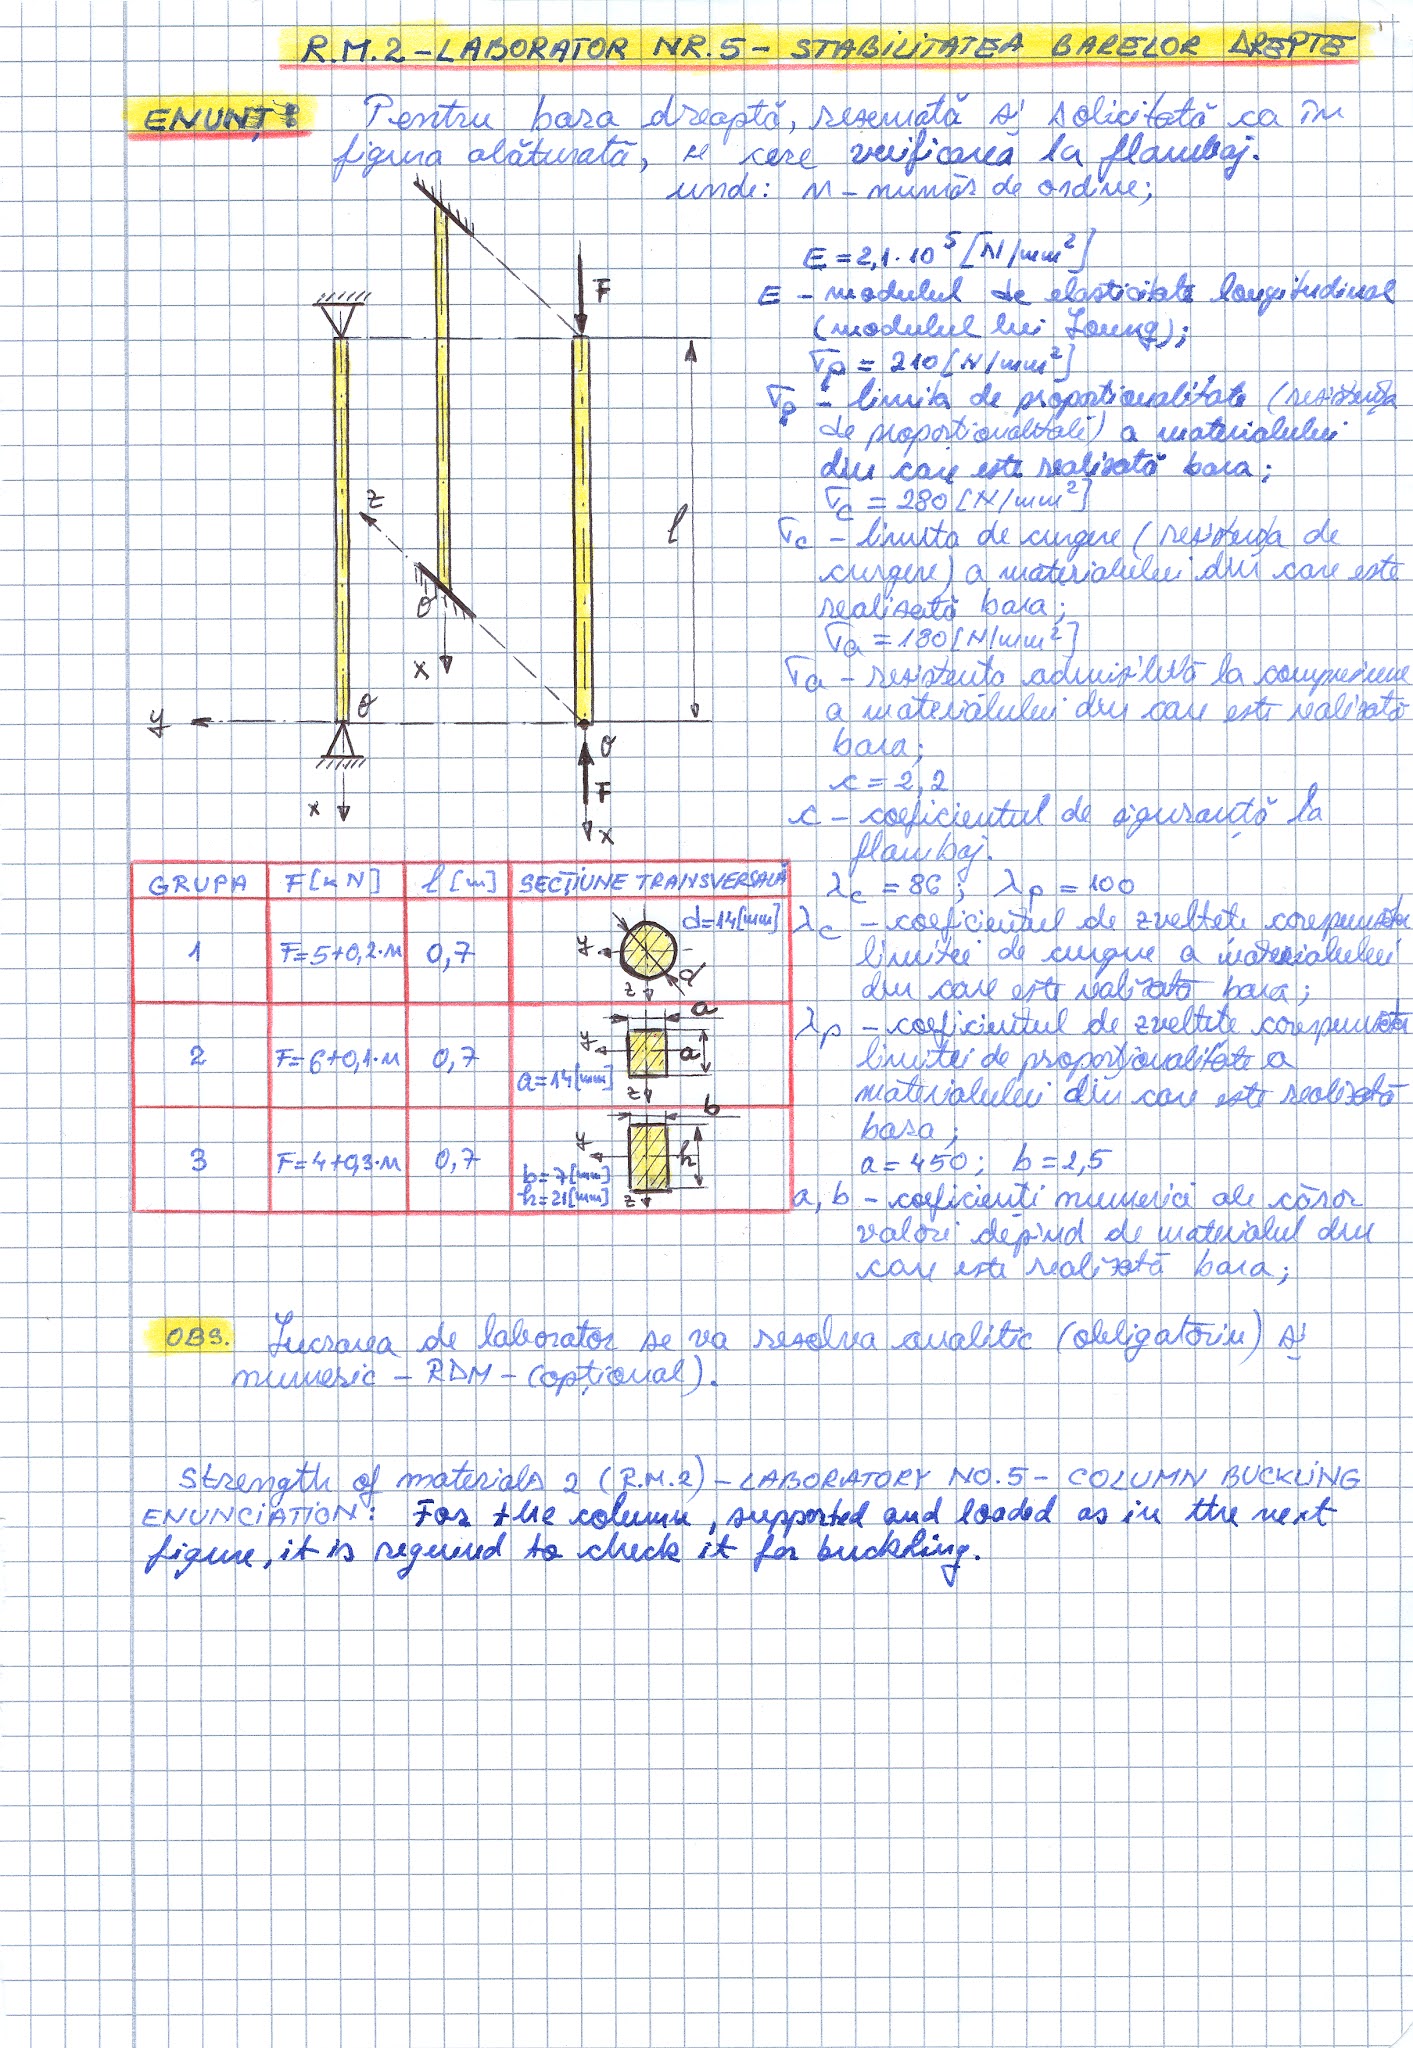 R.M.2 – LABORATOR NR.5 – STABILITATEA BARELOR DREPTE
ENUNȚ: Pentru bara dreaptă, rezemată și solicitată ca în
figura alăturată, se cere verificarea la flambaj.
unde: n – număr de ordine;
E = 2,1·10⁵ [N/mm²]
E – modulul de elasticitate longitudinal
(modulul lui Young);
σp = 210 [N/mm²]
σp – limita de proporționalitate (rezistența
de proporționalitate) a materialului
din care este realizată bara;
σc = 280 [N/mm²]
σc – limita de curgere (rezistența de
curgere) a materialului din care este
realizată bara;
σa = 180 [N/mm²]
σa – rezistența admisibilă la compresiune
a materialului din care este realizată
bara;
c = 2,2
c – coeficientul de siguranță la
flambaj.
λc = 86 ; λp = 100
λc – coeficientul de zveltețe corespunzător
limitei de curgere a materialului
din care este realizată bara;
λp – coeficientul de zveltețe corespunzător
limitei de proporționalitate a
materialului din care este realizată
bara;
a = 450 ; b = 2,5
a, b – coeficienți numerici ale căror
valori depind de materialul din
care este realizată bara;
F
z
l
O
x
y
O
x
O
F
x
GRUPA F[kN] l[m] SECȚIUNE TRANSVERSALĂ
1 F=5+0,2·n 0,7 d=14[mm] y z d
2 F=6+0,1·n 0,7 a=14[mm] y z a a
3 F=4+0,3·n 0,7 b=7[mm] h=21[mm] y z b h
OBS. Lucrarea de laborator se va rezolva analitic (obligatoriu) și
numeric – RDM – (opțional).
Strength of materials 2 (R.M.2) – LABORATORY NO.5 – COLUMN BUCKLING
ENUNCIATION: For the column, supported and loaded as in the next
figure, it is required to check it for buckling.